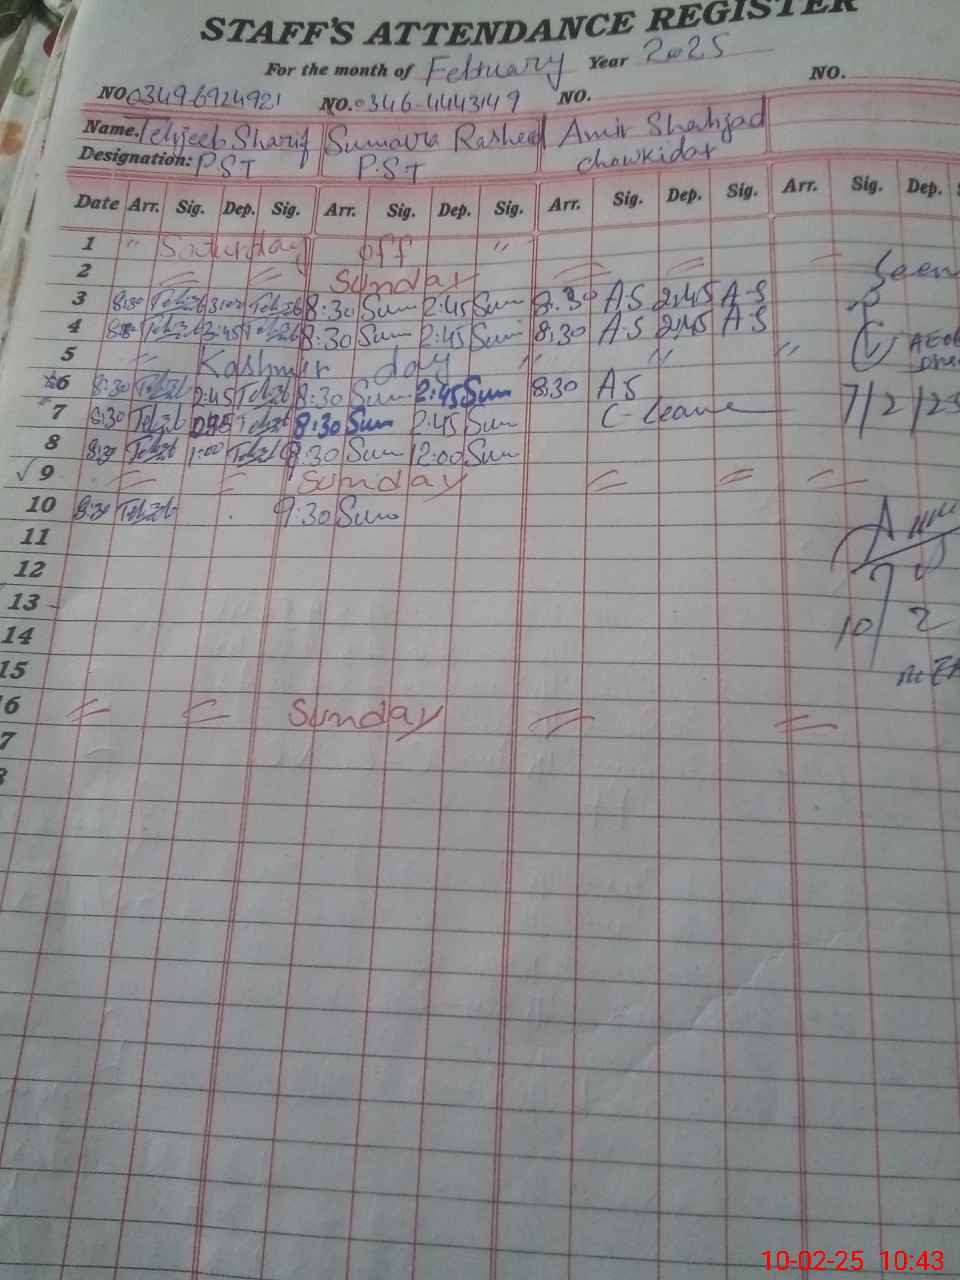 STAFF'S ATTENDANCE REGISTER
For the month of February Year 2025
NO 0349-6924921 NO. 0346-4443149 NO. NO.
Name. Tehjeeb Sharif Sumaira Rasheed Amir Shahzad
Designation: P.S.T P.S.T chowkidar
Date Arr. Sig. Dep. Sig. Arr. Sig. Dep. Sig. Arr. Sig. Dep. Sig. Arr. Sig. Dep.
1 " Saturday off "
2 = = Sunday = = Seen
3 8:30 3:00 8:30 Sum 2:45 Sum 8:30 A.S 2:45 A-S
4 8:30 2:45 8:30 Sum 2:45 Sum 8:30 A.S 2:45 A-S
5 " Kashmir day " " "
6 8:30 2:45 8:30 Sum 2:45 Sum 8:30 A.S
7 8:30 8:30 Sum 2:45 Sum C-Leave 7/2/25
8 8:30 1:00 8:30 Sum 12:00 Sum
9 = = Sunday = = =
10 8:30 9:30 Sum
11
12
13
14 10/2
15
16 = = Sunday = =
7
10-02-25 10:43